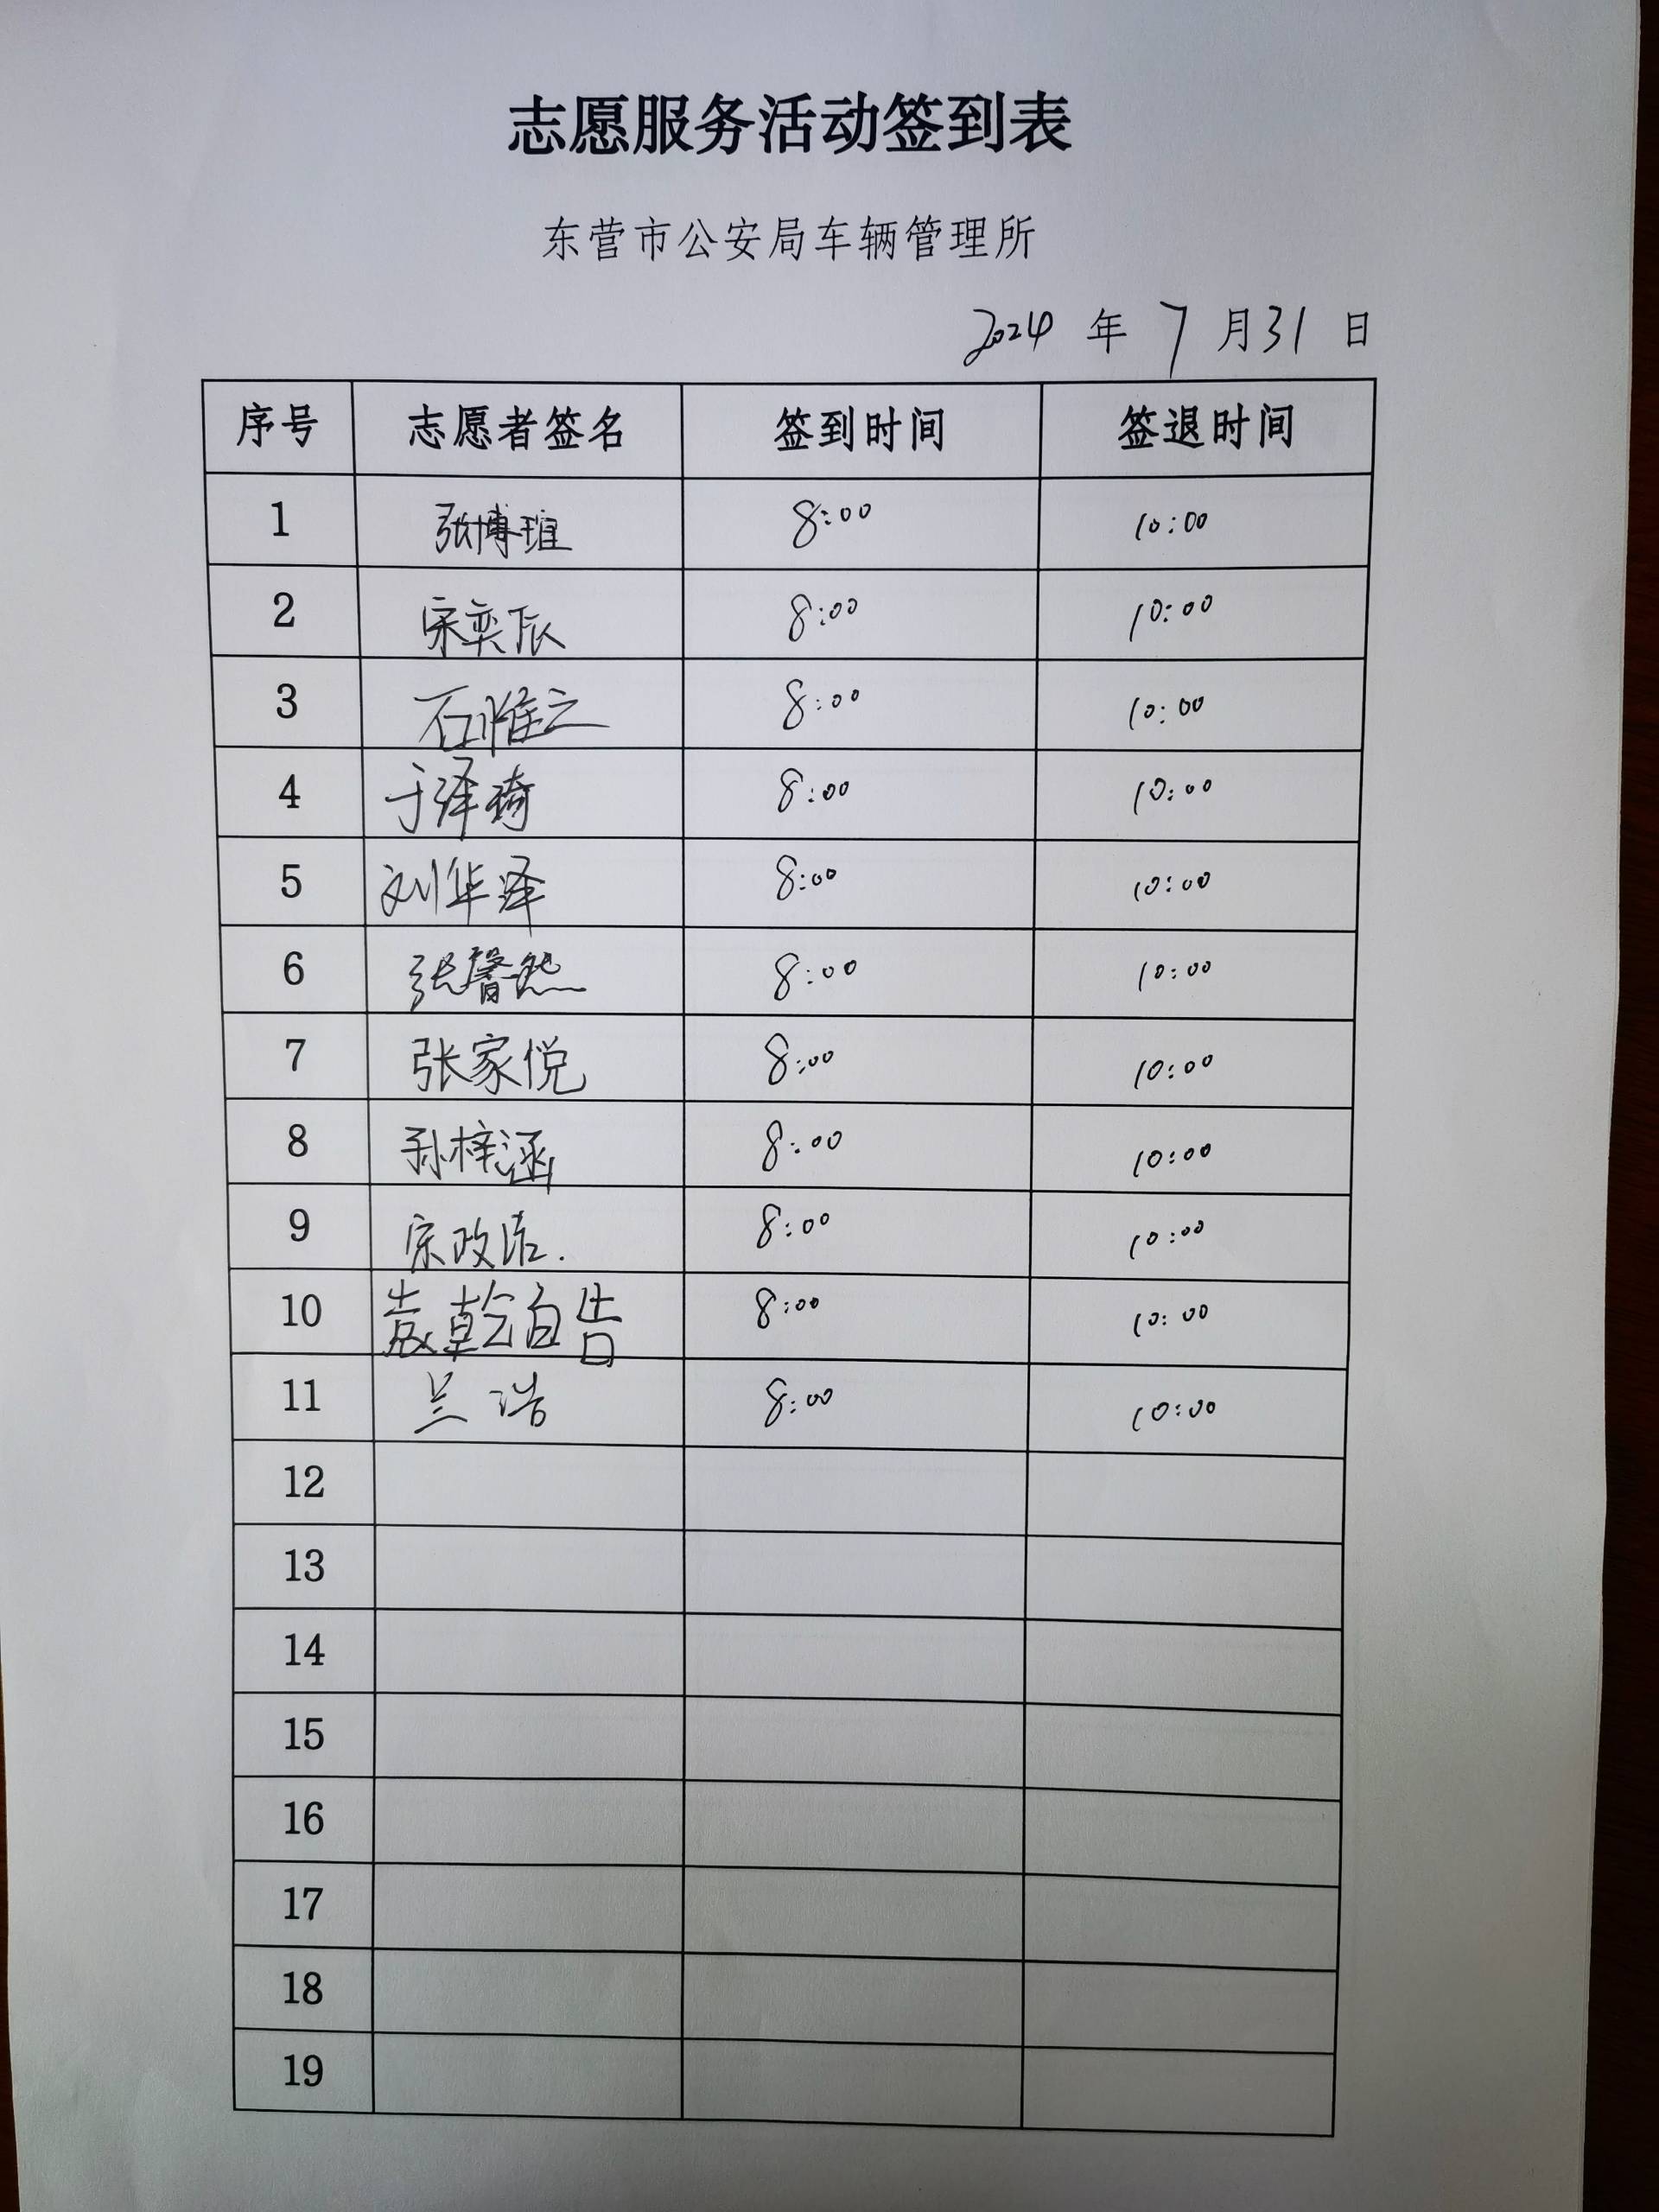 志愿服务活动签到表
东营市公安局车辆管理所
2024 年 7 月 31 日
序号 志愿者签名 签到时间 签退时间
1 张博瑄 8:00 10:00
2 宋奕辰 8:00 10:00
3 石惟立 8:00 10:00
4 于泽琦 8:00 10:00
5 刘华泽 8:00 10:00
6 张馨然 8:00 10:00
7 张家悦 8:00 10:00
8 孙梓涵 8:00 10:00
9 宗政 8:00 10:00
10 袁乾皓 8:00 10:00
11 兰浩 8:00 10:00
12
13
14
15
16
17
18
19